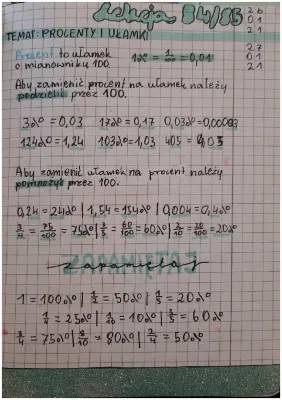 Lekcja 84/85
26
01
21
27
01
21
TEMAT: PROCENTY I UŁAMKI
Procent to ułamek
o mianowniku 100.
1% = 1/100 = 0,01
Aby zamienić procent na ułamek należy
podzielić przez 100.
3% = 0,03 17% = 0,17 0,03% = 0,0003
124% = 1,24 103% = 1,03
Aby zamienić ułamek na procent należy
pomnożyć przez 100.
0,24 = 24% | 1,54 = 154% | 0,004 = 0,4%
3/4 = 75/100 = 75% | 3/5 = 60/100 = 60% | 2/10 = 20/100 = 20%
zapamiętaj
1 = 100% | 1/2 = 50% | 1/5 = 20%
1/4 = 25% | 1/10 = 10% | 3/5 = 60%
3/4 = 75% | 8/10 = 80% | 2/4 = 50%